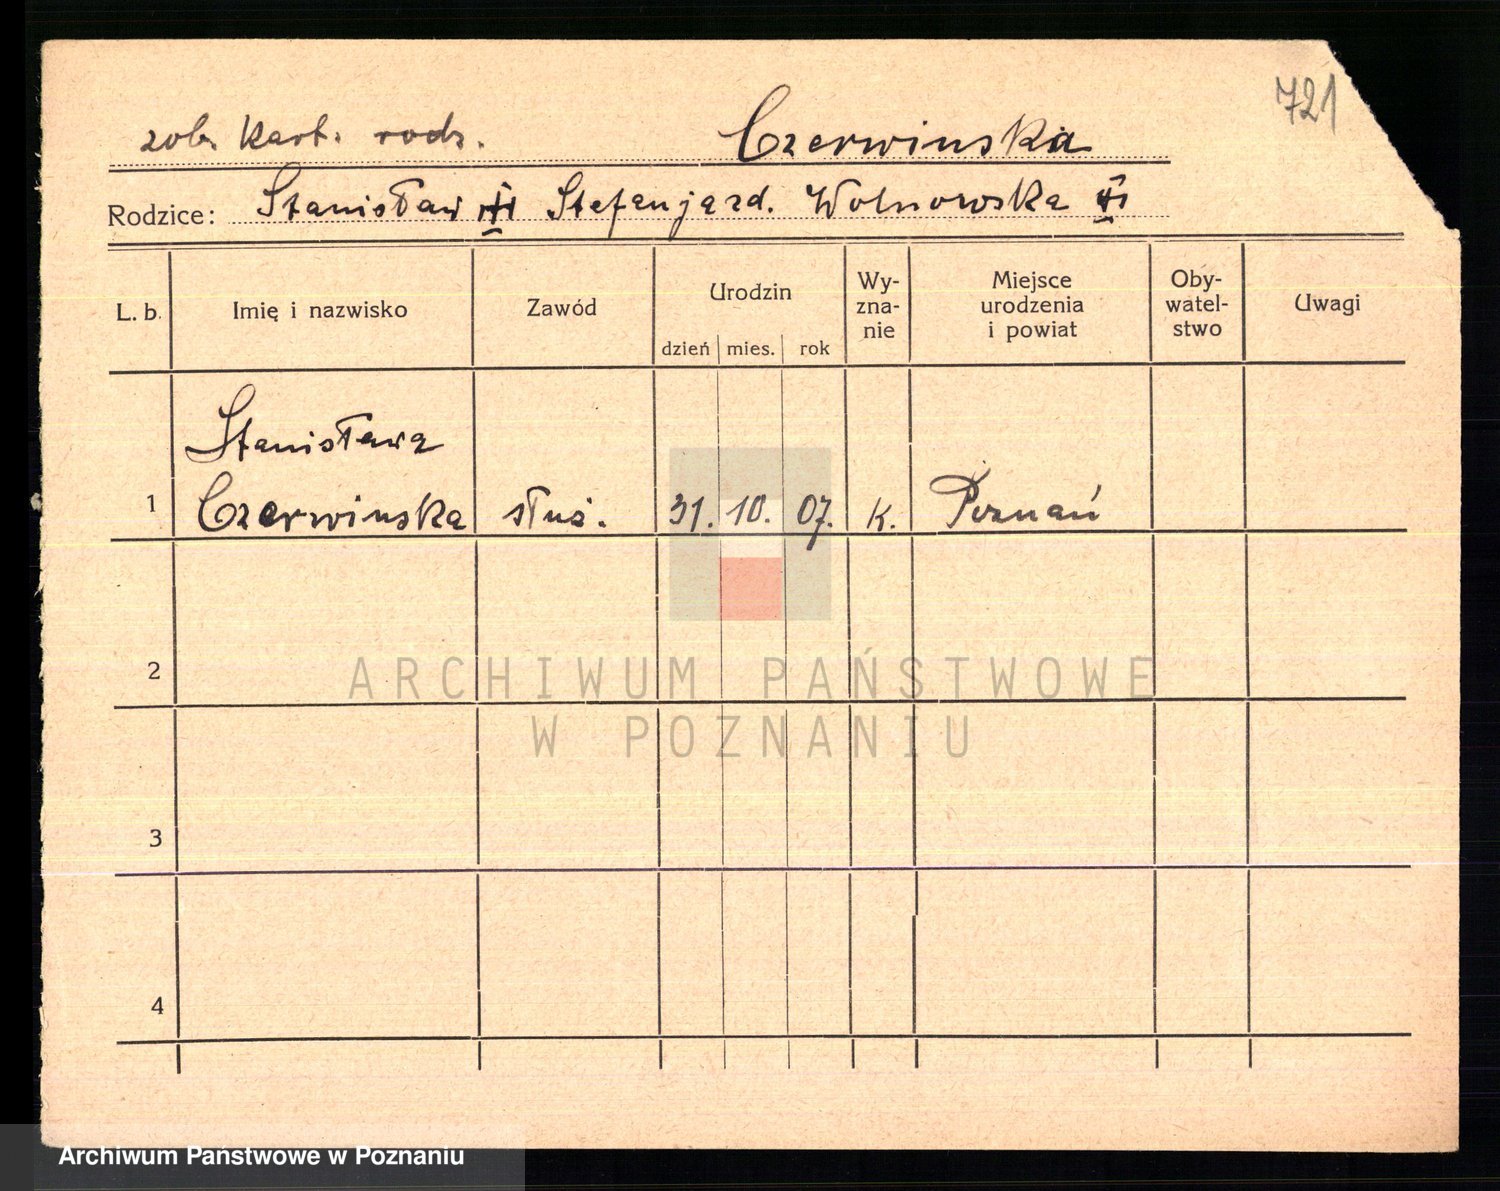 721
zob. Kart. rodz. Czerwinska
Rodzice: Stanisław Stefanja zd. Wolnowska
L. b. Imię i nazwisko Zawód Urodzin Wy- Miejsce Oby- Uwagi
zna- urodzenia watel-
nie i powiat stwo
dzień mies. rok
Stanisława
1 Czerwinska służ. 31. 10. 07. K. Poznań
2
ARCHIWUM PAŃSTWOWE
W POZNANIU
3
4
Archiwum Państwowe w Poznaniu